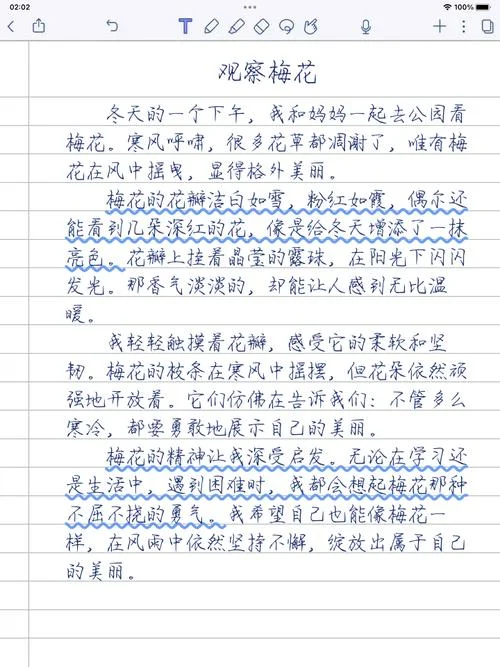 02:02
100%
观察梅花
冬天的一个下午，我和妈妈一起去公园看
梅花。寒风呼啸，很多花草都凋谢了，唯有梅
花在风中摇曳，显得格外美丽。
梅花的花瓣洁白如雪，粉红如霞，偶尔还
能看到几朵深红的花，像是给冬天增添了一抹
亮色。花瓣上挂着晶莹的露珠，在阳光下闪闪
发光。那香气淡淡的，却能让人感到无比温
暖。
我轻轻触摸着花瓣，感受它的柔软和坚
韧。梅花的枝条在寒风中摇摆，但花朵依然顽
强地开放着。它们仿佛在告诉我们：不管多么
寒冷，都要勇敢地展示自己的美丽。
梅花的精神让我深受启发。无论在学习还
是生活中，遇到困难时，我都会想起梅花那种
不屈不挠的勇气。我希望自己也能像梅花一
样，在风雨中依然坚持不懈，绽放出属于自己
的美丽。